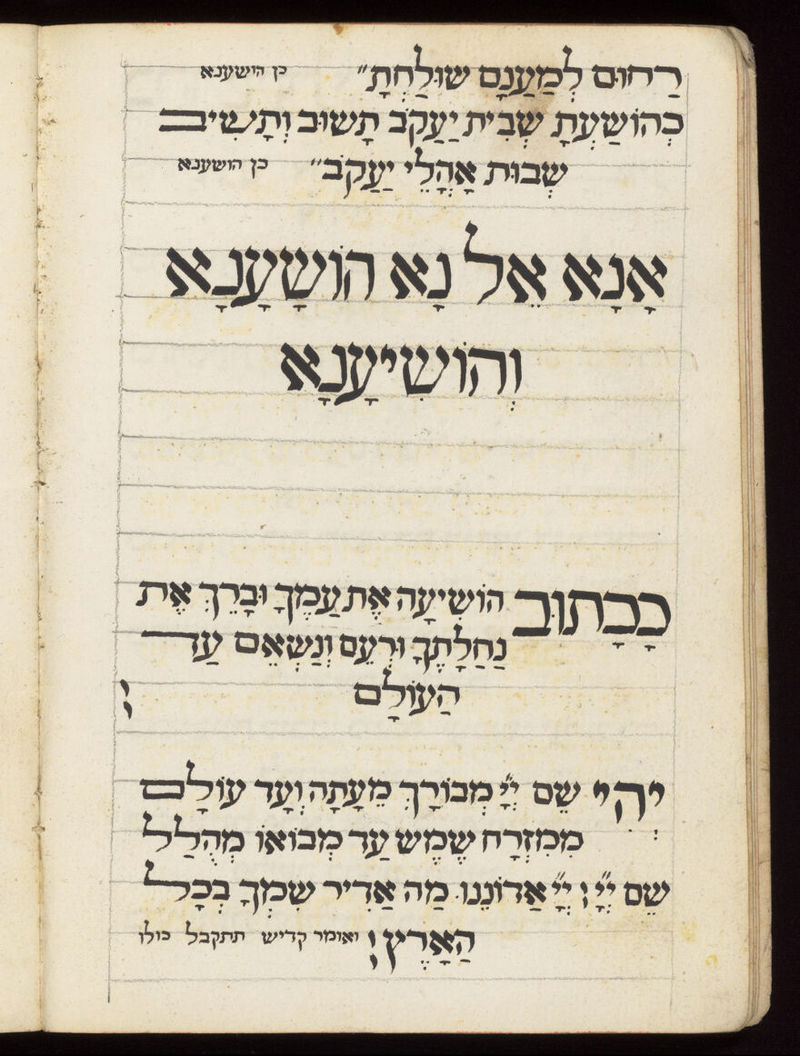 רַחוּם לְמַעֲנָם שׁוּלַחְתָּ״ כן הישענא
כְּהוֹשַׁעְתָּ שְׁבִית יַעֲקֹב תָּשׁוּב וְתָשִׁיב
שְׁבוּת אָהֳלֵי יַעֲקֹב״ כן הושענא
אָנָא אֵל נָא הוֹשָׁעֲנָא
וְהוֹשִׁיעָנָא
כַּכָּתוּב הוֹשִׁיעָה אֶת עַמֶּךָ וּבָרֵךְ אֶת
נַחֲלָתֶךָ וּרְעֵם וְנַשְּׂאֵם עַד
הָעוֹלָם
יְהִי שֵׁם יְיָ מְבוֹרָךְ מֵעַתָּה וְעַד עוֹלָם
מִמִזְרָח שֶׁמֶשׁ עַד מְבוֹאוֹ מְהֻלָּל
שֵׁם יְיָ׃ יְיָ אֲדוֹנֵנוּ מַה אַדִּיר שִׁמְךָ בְּכָל
הָאָרֶץ׃ ואומר קדיש תתקבל כולו